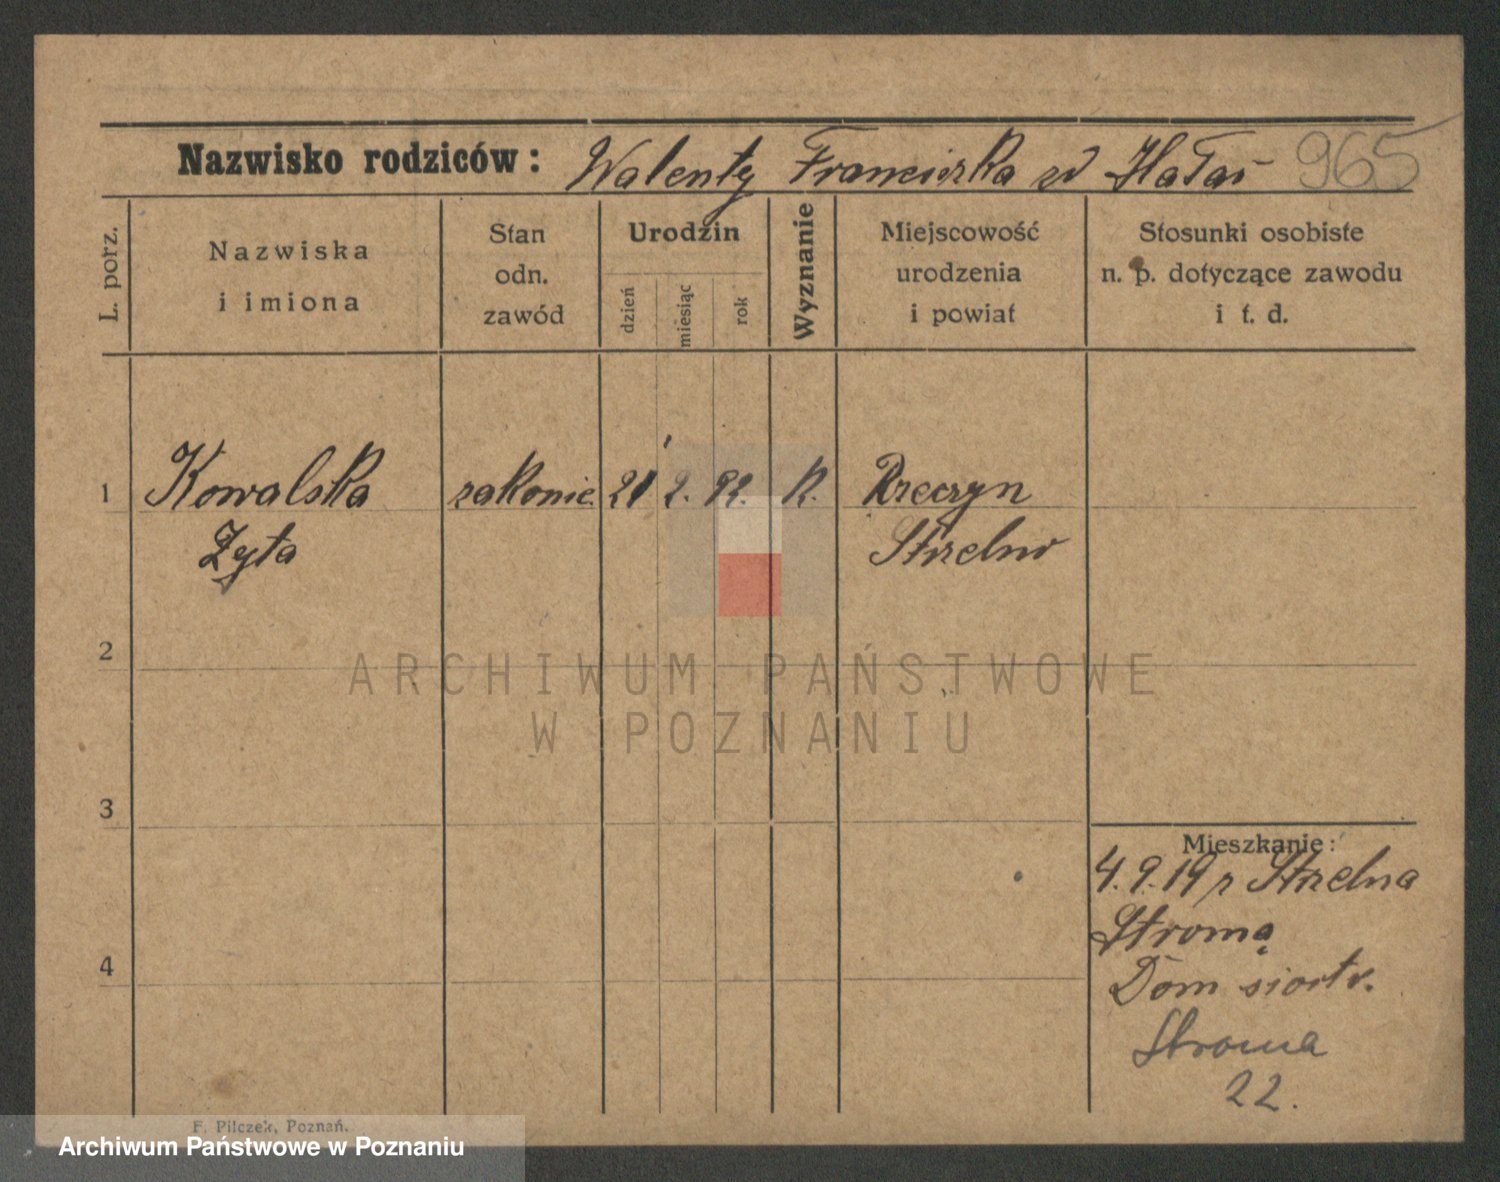 Nazwisko rodziców: Walenty Franciszka zd Hałas 965
L. porz.
Nazwiska
i imiona
Stan
odn.
zawód
Urodzin
dzień
miesiąc
rok
Wyznanie
Miejscowość
urodzenia
i powiat
Stosunki osobiste
n. p. dotyczące zawodu
i t. d.
1 Kowalska zakonic. 21 2. 92. K. Rzeczyn
Zyta Strzelno
2
3
4
Mieszkanie:
4.9.19 z Strzelna
Stromą
Dom siostr.
Stroma
22.
F. Pilczek, Poznań.
ARCHIWUM PAŃSTWOWE
W POZNANIU
Archiwum Państwowe w Poznaniu